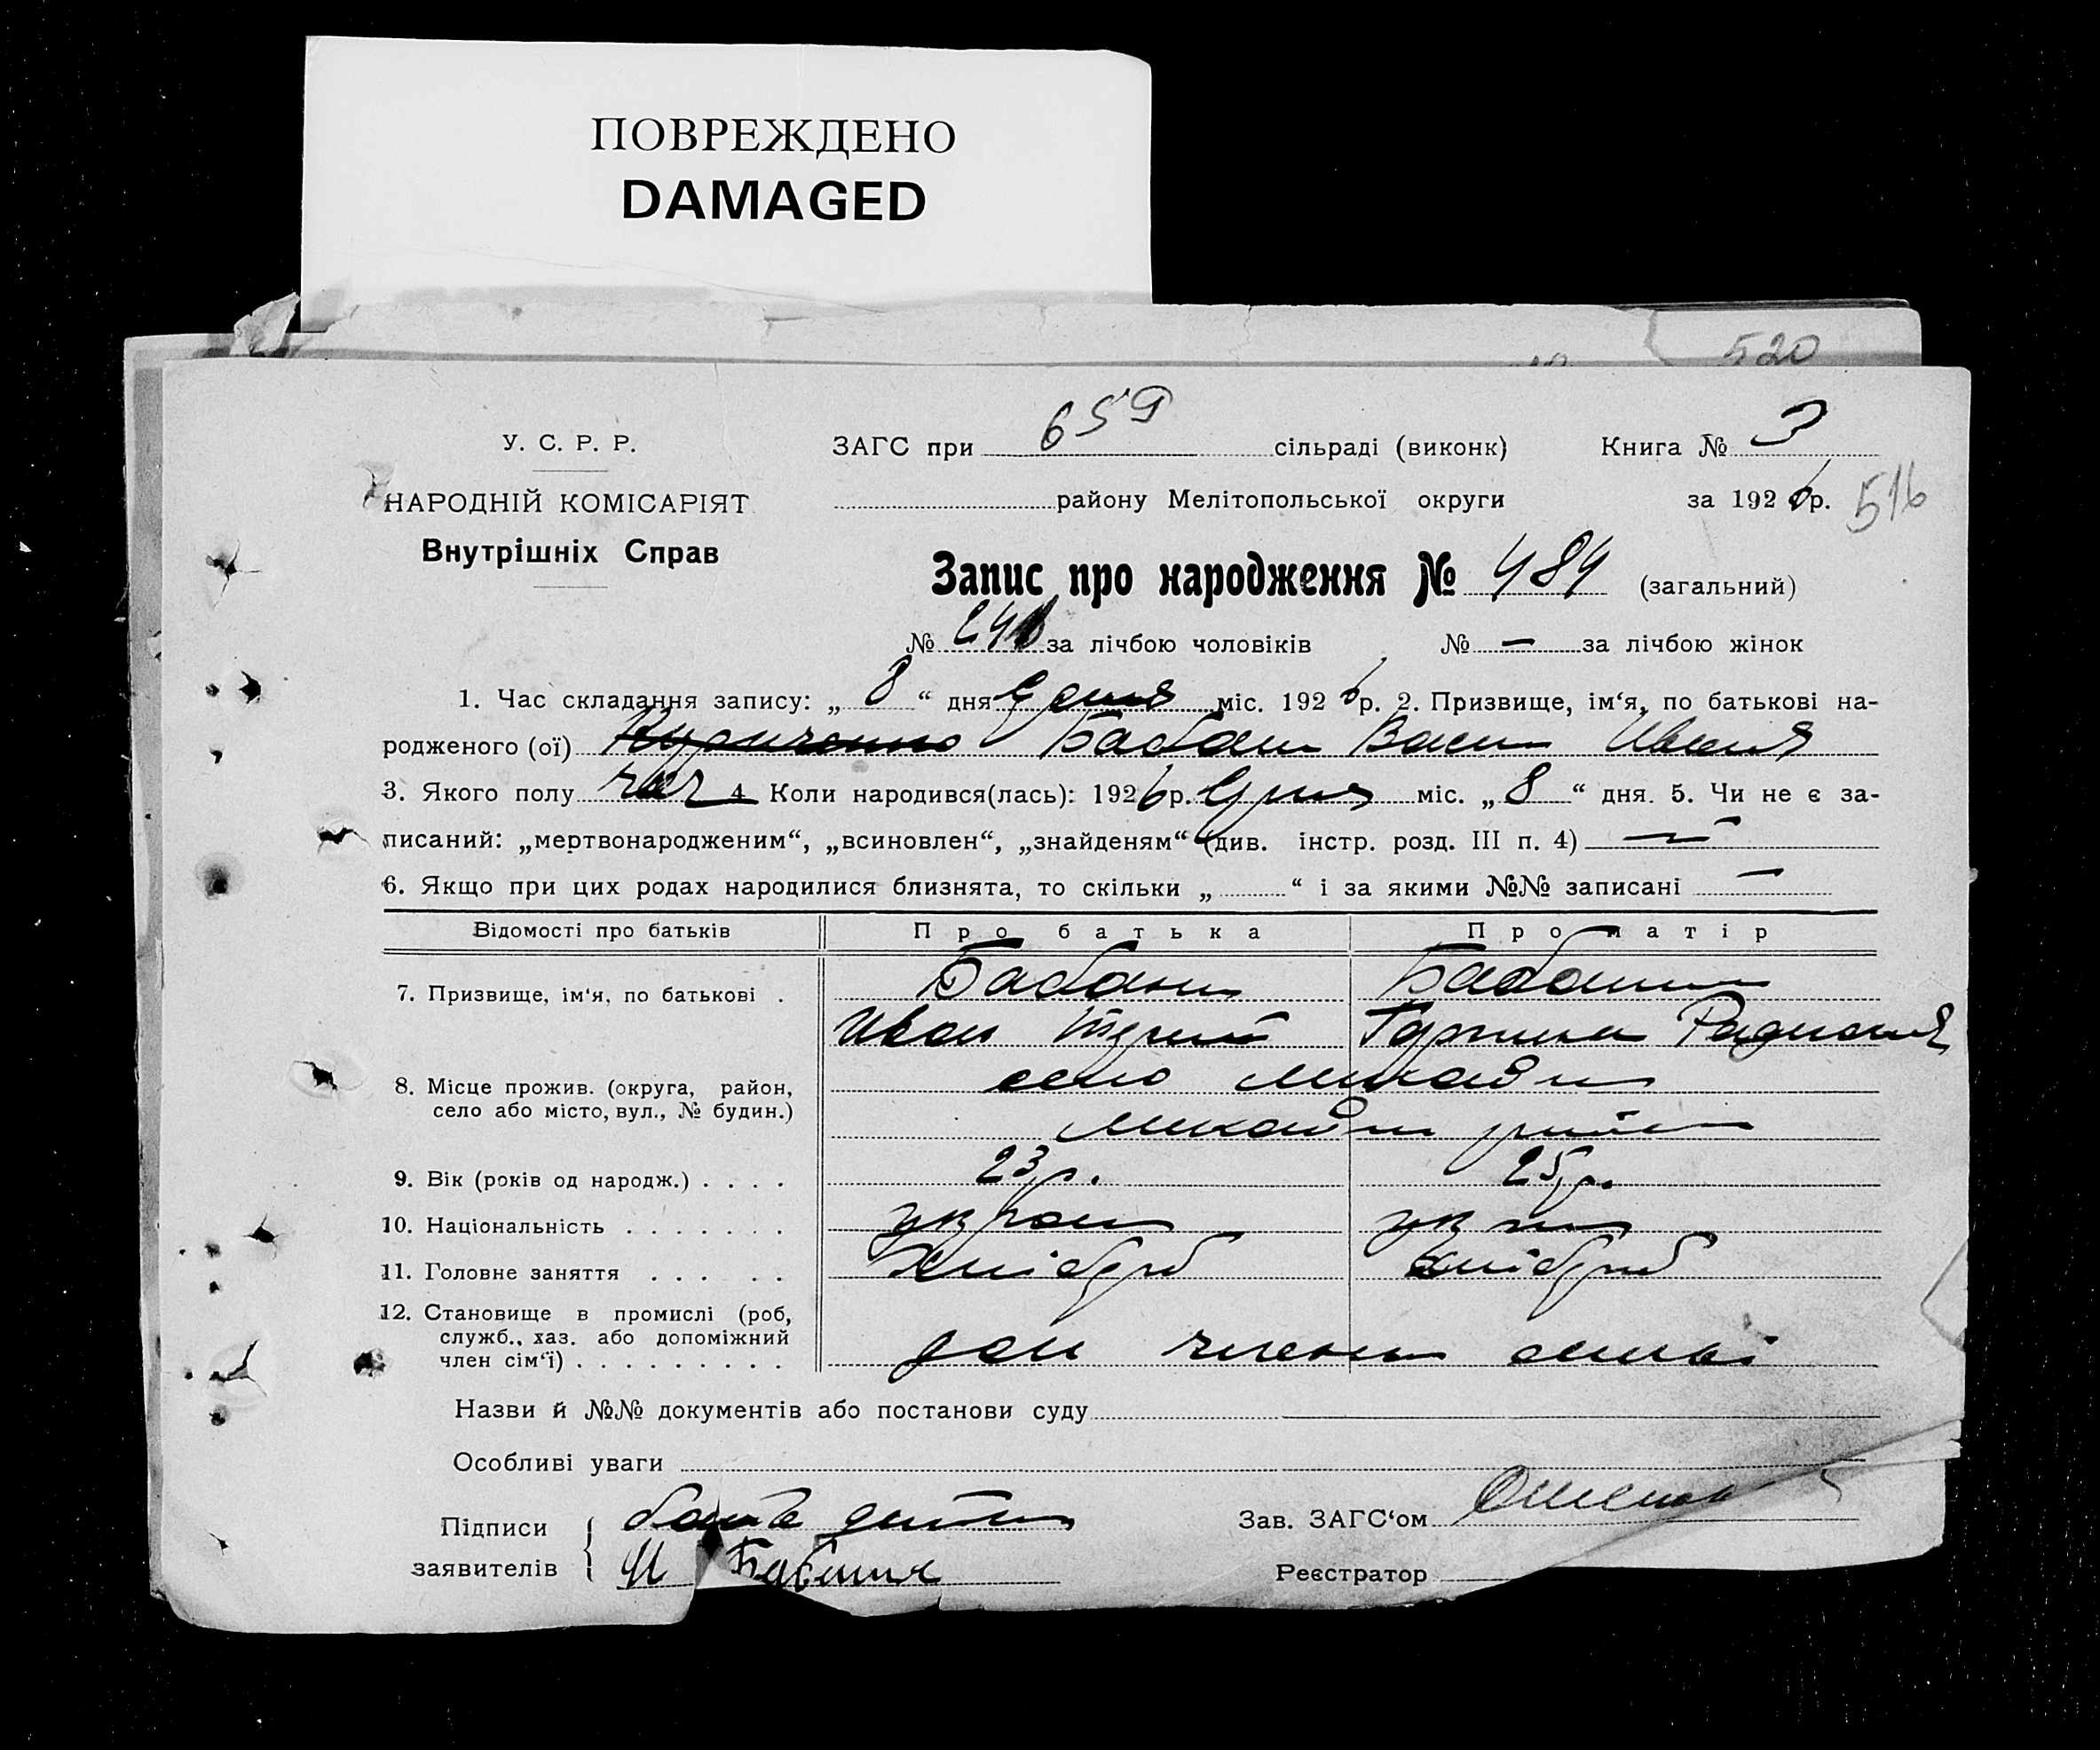 ПОВРЕЖДЕНО
DAMAGED
520
У. С. Р. Р.
НАРОДНІЙ КОМІСАРІЯТ
Внутрішніх Справ
ЗАГС при 659 сільраді (виконк)
Книга № 3
району Мелітопольської округи
за 1926 р.
516
Запис про народження № 484 (загальний)
№ 241 за лічбою чоловіків № — за лічбою жінок
1. Час складання запису: „ 8 “ дня міс. 1926 р. 2. Призвище, ім‘я, по батькові на-
родженого (ої) Бабан Васи Ивания
3. Якого полу чол 4 Коли народився(лась): 1926 р. міс. „ 8 “ дня. 5. Чи не є за-
писаний: „мертвонародженим“, „всиновлен“, „знайденям“ (див. інстр. розд. III п. 4) —
6. Якщо при цих родах народилися близнята, то скільки „ “ і за якими №№ записані —
Відомості про батьків Про батька Про матір
7. Призвище, ім‘я, по батькові .
Иван
8. Місце прожив. (округа, район,
село або місто, вул., № будин.)
село
9. Вік (років од народж.) . . . . 23 р. 25 р.
10. Національність . . . . . . .
11. Головне заняття . . . . . хлібороб хлібороб
12. Становище в промислі (роб,
служб., хаз. або допоміжний
член сім‘ї) . . . . . . . . .
доп члени
Назви й №№ документів або постанови суду
Особливі уваги
Підписи
заявителів
И
Зав. ЗАГС‘ом
Реєстратор